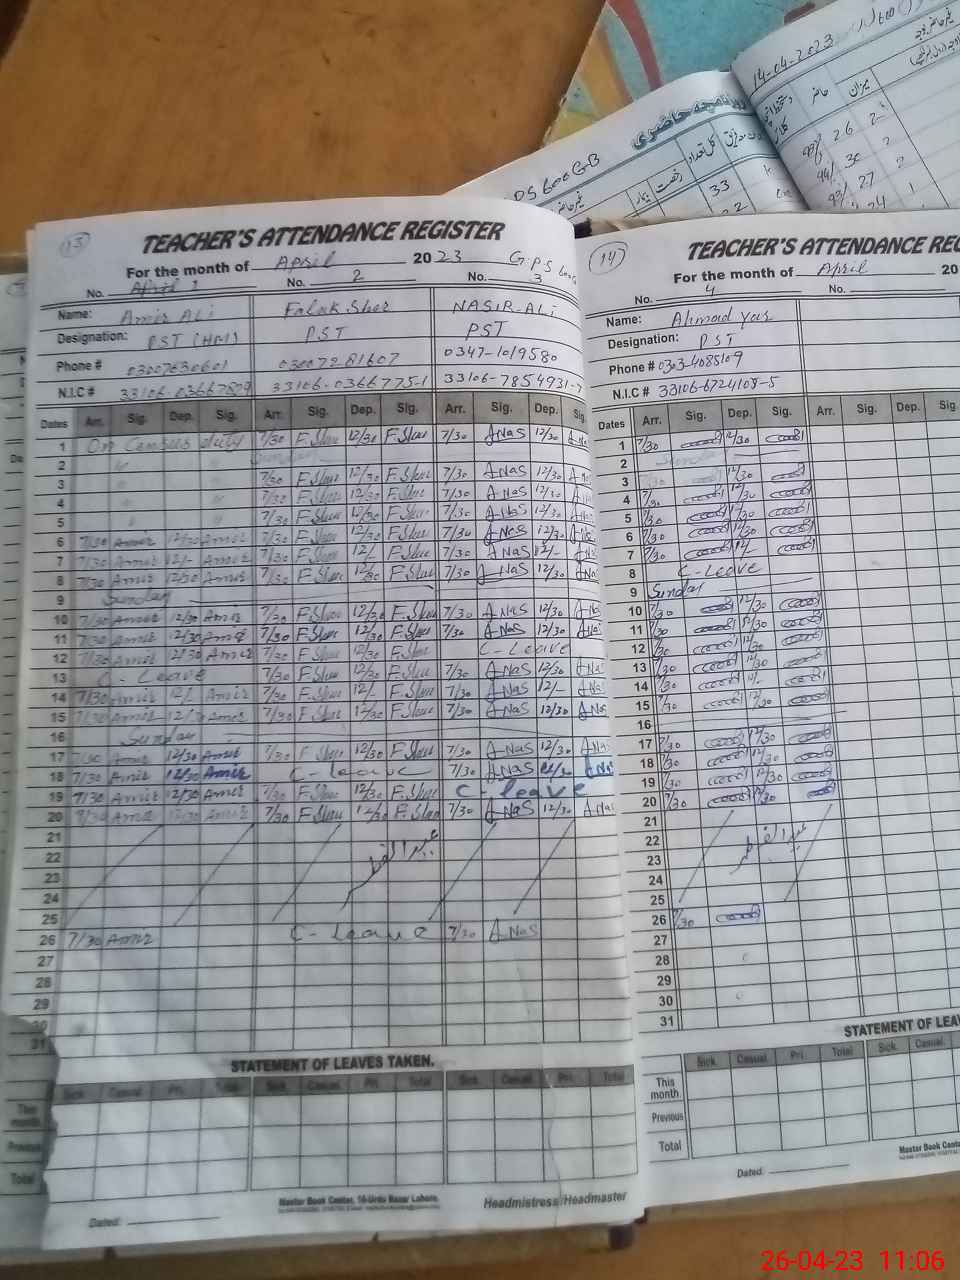 14-04-2023
روزنامچہ حاضری
PS 600GB
کل تعداد
رخصت
بیمار
33
میزان
حاضر
26 2
30 2
27 2
24 1
13
TEACHER'S ATTENDANCE REGISTER
For the month of April 2023 G.P.S 600G
No. 1 No. 2 No. 3
Name: Amir Ali Falak Sher NASIR-ALi
Designation: PST (HM) PST PST
Phone # 03007630601 0300 72 81607 0347-1019580
N.I.C # 33106-03667809 33106-0366775-1 33106-7854931-7
Dates Arr. Sig. Dep. Sig. Arr. Sig. Dep. Sig. Arr. Sig. Dep. Sig.
1 On Campus duty 7/30 F.Sher 12/30 F.Sher 7/30 ANAS 12/30 ANAS
2 " " Sunday
3 " " 7/30 F.Sher 12/30 F.Sher 7/30 ANAS 12/30 ANAS
4 " " 7/30 F.Sher 12/30 F.Sher 7/30 ANAS 12/30 ANAS
5 " " 7/30 F.Sher 12/30 F.Sher 7/30 ANAS 12/30 ANAS
6 7/30 Amir 12/30 Amir 7/30 F.Sher 12/30 F.Sher 7/30 ANAS 12/30 ANAS
7 7/30 Amir 12/- Amir 7/30 F.Sher 12/- F.Sher 7/30 ANAS 12/- ANAS
8 7/30 Amir 12/30 Amir 7/30 F.Sher 12/30 F.Sher 7/30 ANAS 12/30 ANAS
9 Sunday
10 7/30 Amir 12/30 Amir 7/30 F.Sher 12/30 F.Sher 7/30 ANAS 12/30 ANAS
11 7/30 Amir 12/30 Amir 7/30 F.Sher 12/30 F.Sher 7/30 ANAS 12/30 ANAS
12 7/30 Amir 12/30 Amir 7/30 F.Sher 12/30 F.Sher C-Leave
13 C-Leave 7/30 F.Sher 12/30 F.Sher 7/30 ANAS 12/30 ANAS
14 7/30 Amir 12/- Amir 7/30 F.Sher 12/- F.Sher 7/30 ANAS 12/- ANAS
15 7/30 Amir 12/30 Amir 7/30 F.Sher 12/30 F.Sher 7/30 ANAS 12/30 ANAS
16 Sunday
17 7/30 Amir 12/30 Amir 7/30 F.Sher 12/30 F.Sher 7/30 ANAS 12/30 ANAS
18 7/30 Amir 12/30 Amir C-leave 7/30 ANAS 12/30 ANAS
19 7/30 Amir 12/30 Amir 7/30 F.Sher 12/30 F.Sher C-leave
20 7/30 Amir 12/30 Amir 7/30 F.Sher 12/30 F.Sher 7/30 ANAS 12/30 ANAS
21
22 عید الفطر
23
24
25
26 7/30 Amir C-leave 7/30 ANAS
27
28
29
30
31
STATEMENT OF LEAVES TAKEN.
Sick. Casual. Pri. Total Sick. Casual. Pri. Total Sick. Casual. Pri. Total
This month.
Previous
Total
Master Book Center, 16-Urdu Bazar Lahore.
Dated: Headmistress/Headmaster
14
TEACHER'S ATTENDANCE REG
For the month of April 20
No. 4 No.
Name: Ahmad Yar
Designation: PST
Phone # 0303-4088109
N.I.C # 33106-6724108-5
Dates Arr. Sig. Dep. Sig. Arr. Sig. Dep. Sig.
1 7/30 12/30
2 Sunday
3 7/30 12/30
4 7/30 12/30
5 7/30 12/30
6 7/30 12/30
7 7/30 12/-
8 C-Leave
9 Sunday
10 7/30 12/30
11 7/30 12/30
12 7/30 12/30
13 7/30 12/30
14 7/30 12/-
15 7/30 12/30
16
17 7/30 12/30
18 7/30 12/30
19 7/30 12/30
20 7/30 12/30
21
22 عید الفطر
23
24
25
26 7/30
27
28
29
30
31
STATEMENT OF LEAVES
Sick. Casual. Pri. Total Sick. Casual.
This month.
Previous
Total
Master Book Center
Dated:
26-04-23 11:06